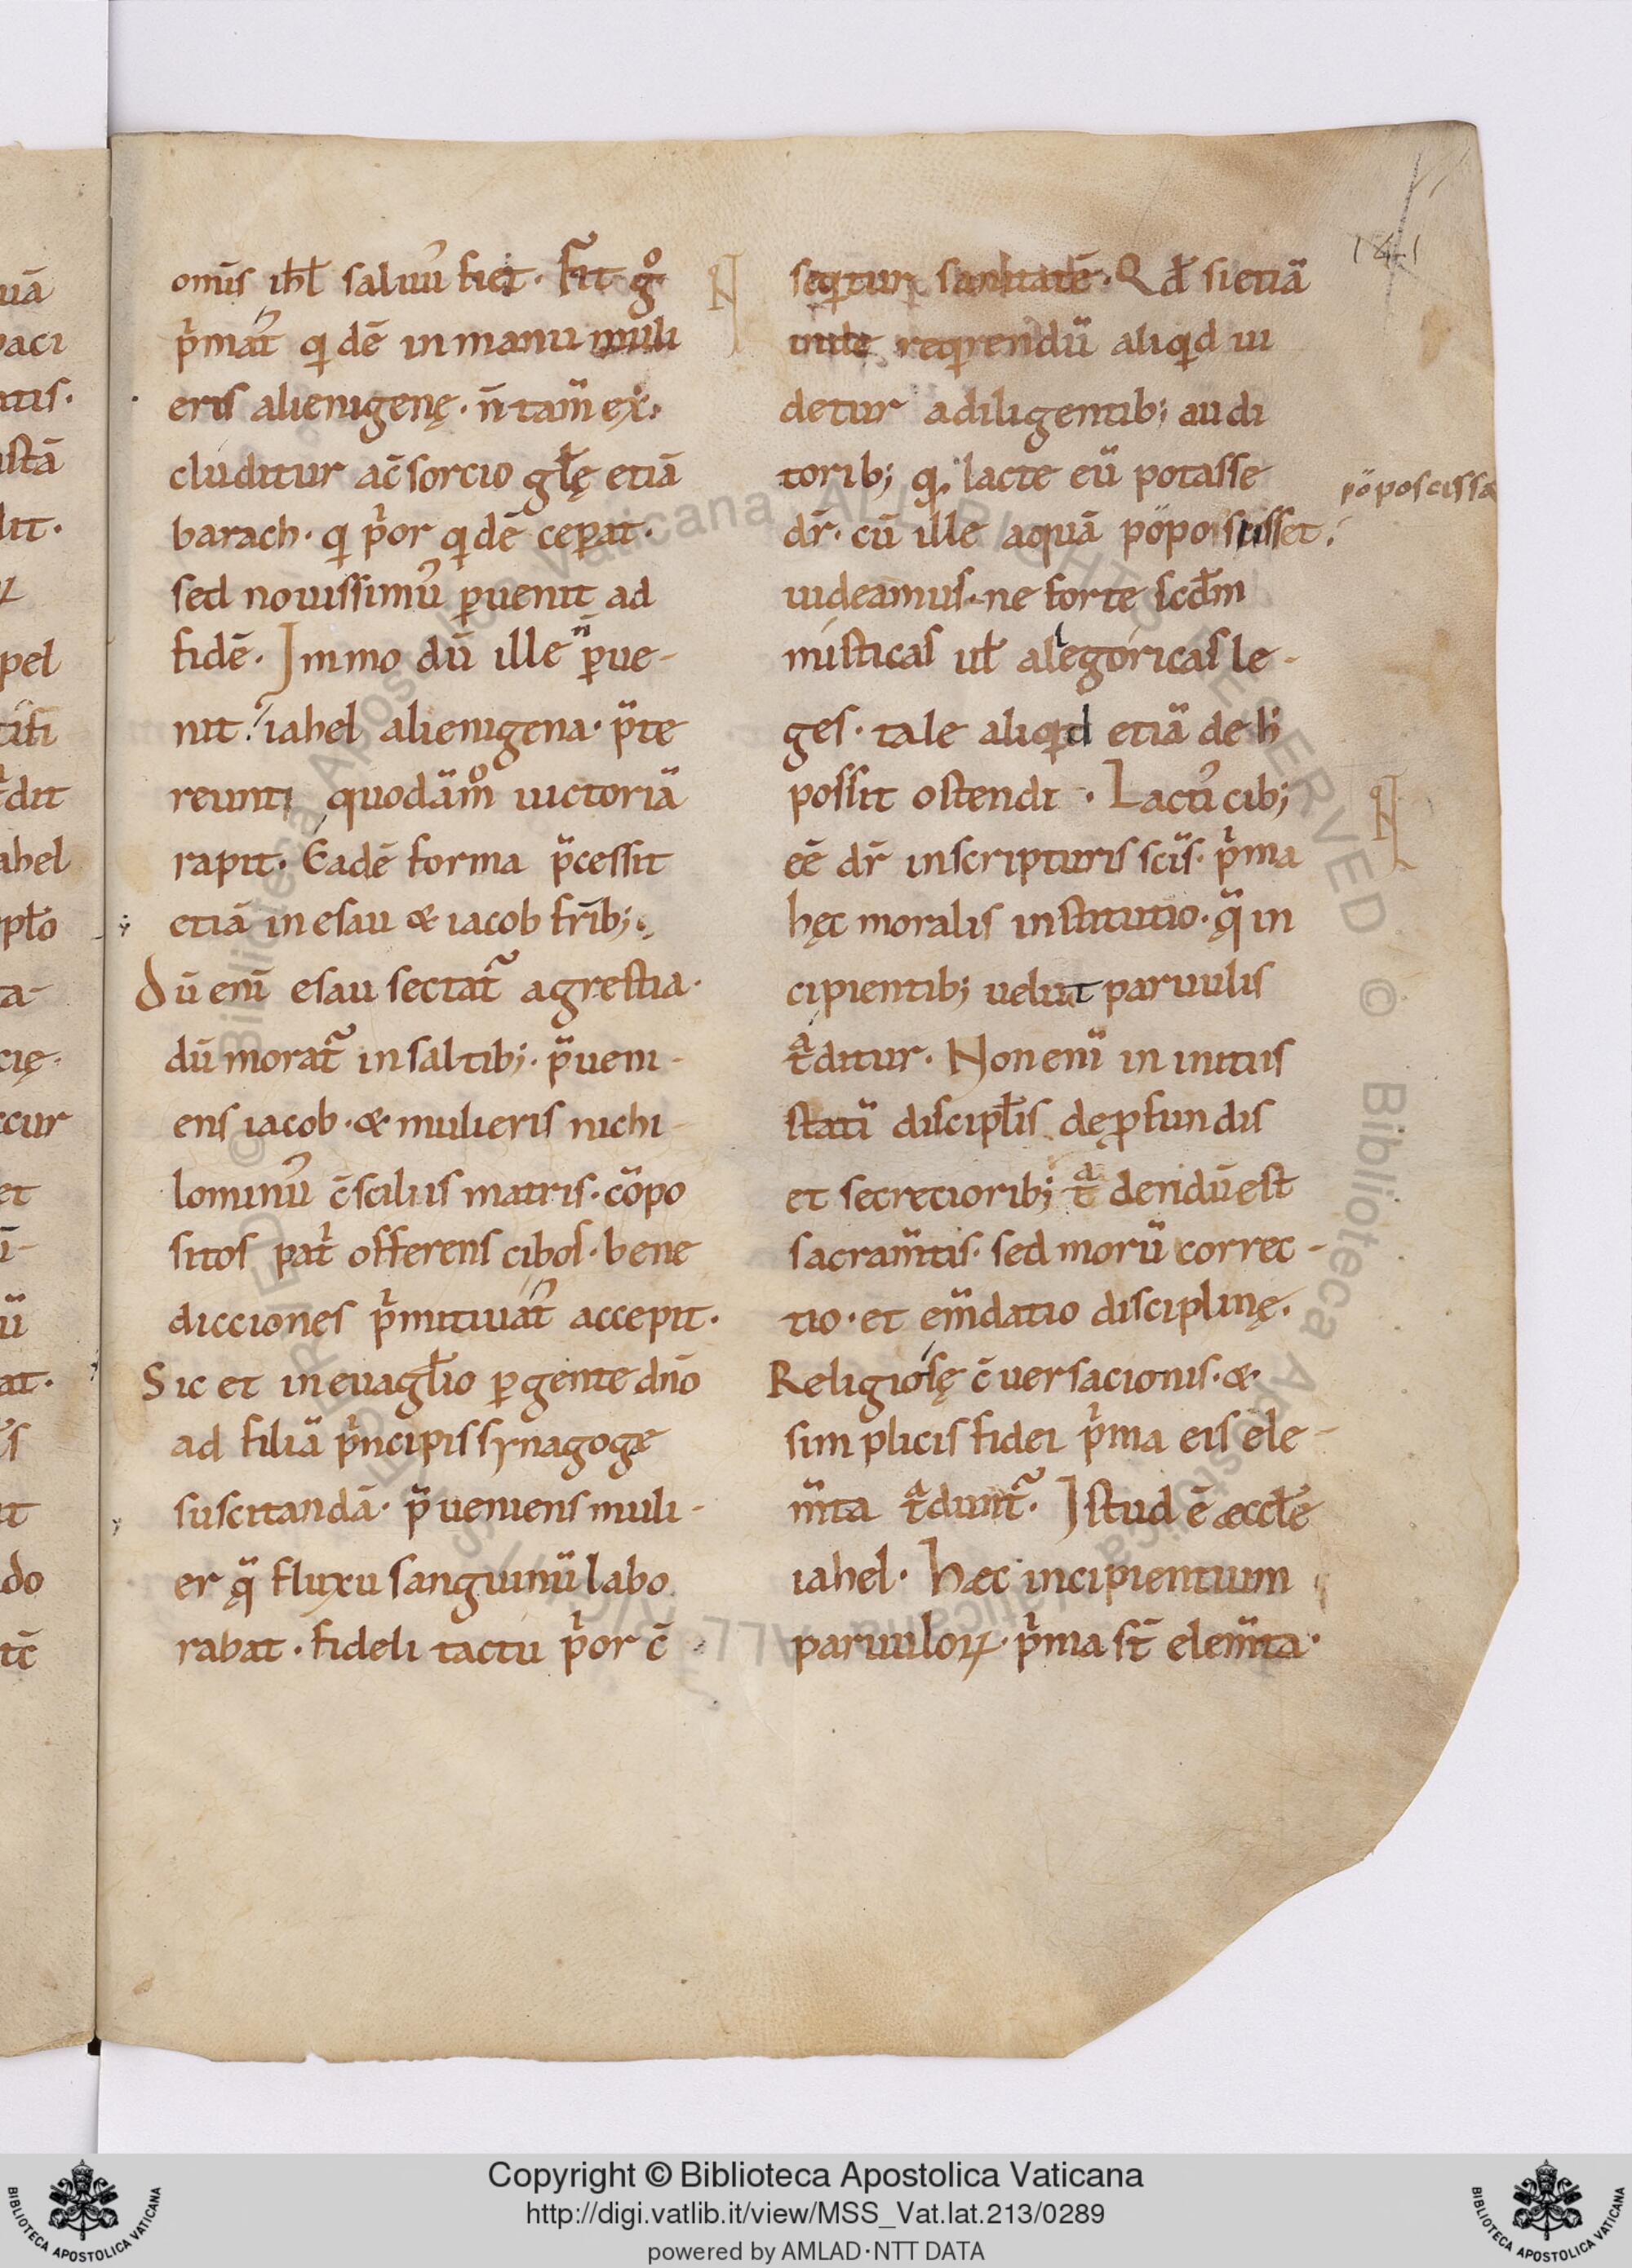 omīs ihł saluus fiet. Fit gͦ
pͥmatus qͥdē in manu muli
eris alienigenę. n̄ tam̄ ex
cluditur a c̄sorcio głę etiā
barach. qͥ pͥor qͥdē ceperat.
sed nouissimus ꝑuenit ad
fidē. Immo dū ille n̄ ꝑue-
nit. iahel alienigena. p̄te
reunti quodāmͦ uictoriā
rapit. Eadē forma p̄cessit
etiā in esau & iacob frīb;.
Dū enī esau sectat᷑ agrestia.
dū morat᷑ in saltib;. p̄ueni-
ens iacob. & mulieris nichi-
lominus c̄siliis matris. cōpo
sitos patͥ offerens cibos. bene
dicciones pͥmitiuatus accepit.
Sic et in euagłio ꝑgente dn̄o
ad filiā pͥncipis synagogę
suscitandā. p̄ueniens muli-
er qᷓ fluxu sanguinū labo
rabat. fideli tactu pͥor c̄
seqͥtur sanitatē. Qđ si etiā
inde reqͥrendū aliqͥd ui
detur a diligentib; audi
torib; q. lacte eū potasse
dr̄. cū ille aquā pōposcisset.
uideamus. ne forte scđm
misticas uł alegoricas le-
ges. tale aliqͥd etiā de h
possit ostendi. Lactis cib;
eē dr̄ in scripturis scīs. pͥma
hęc moralis institutio. qᷓ in
cipientib; uelut paruulis
tͣditur. Non enī in initiis
statī discipłis de ꝓfundis
et secrecioribꝫ tͣdendū est
sacram̄tis. sed morū correc-
tio. et em̄datio disciplinę.
Religiosę c̄uersacionis. &
simplicis fidei pͥma eis ele-
m̄ta tͣdunt᷑. Istud ē æccłe
iahel. Hæc incipientium
paruuloꝝ. pͥma st̄ elem̄ta.
pōposcissᷓ
141
Copyright © Biblioteca Apostolica Vaticana
http://digi.vatlib.it/view/MSS_Vat.lat.213/0289
powered by AMLAD·NTT DATA